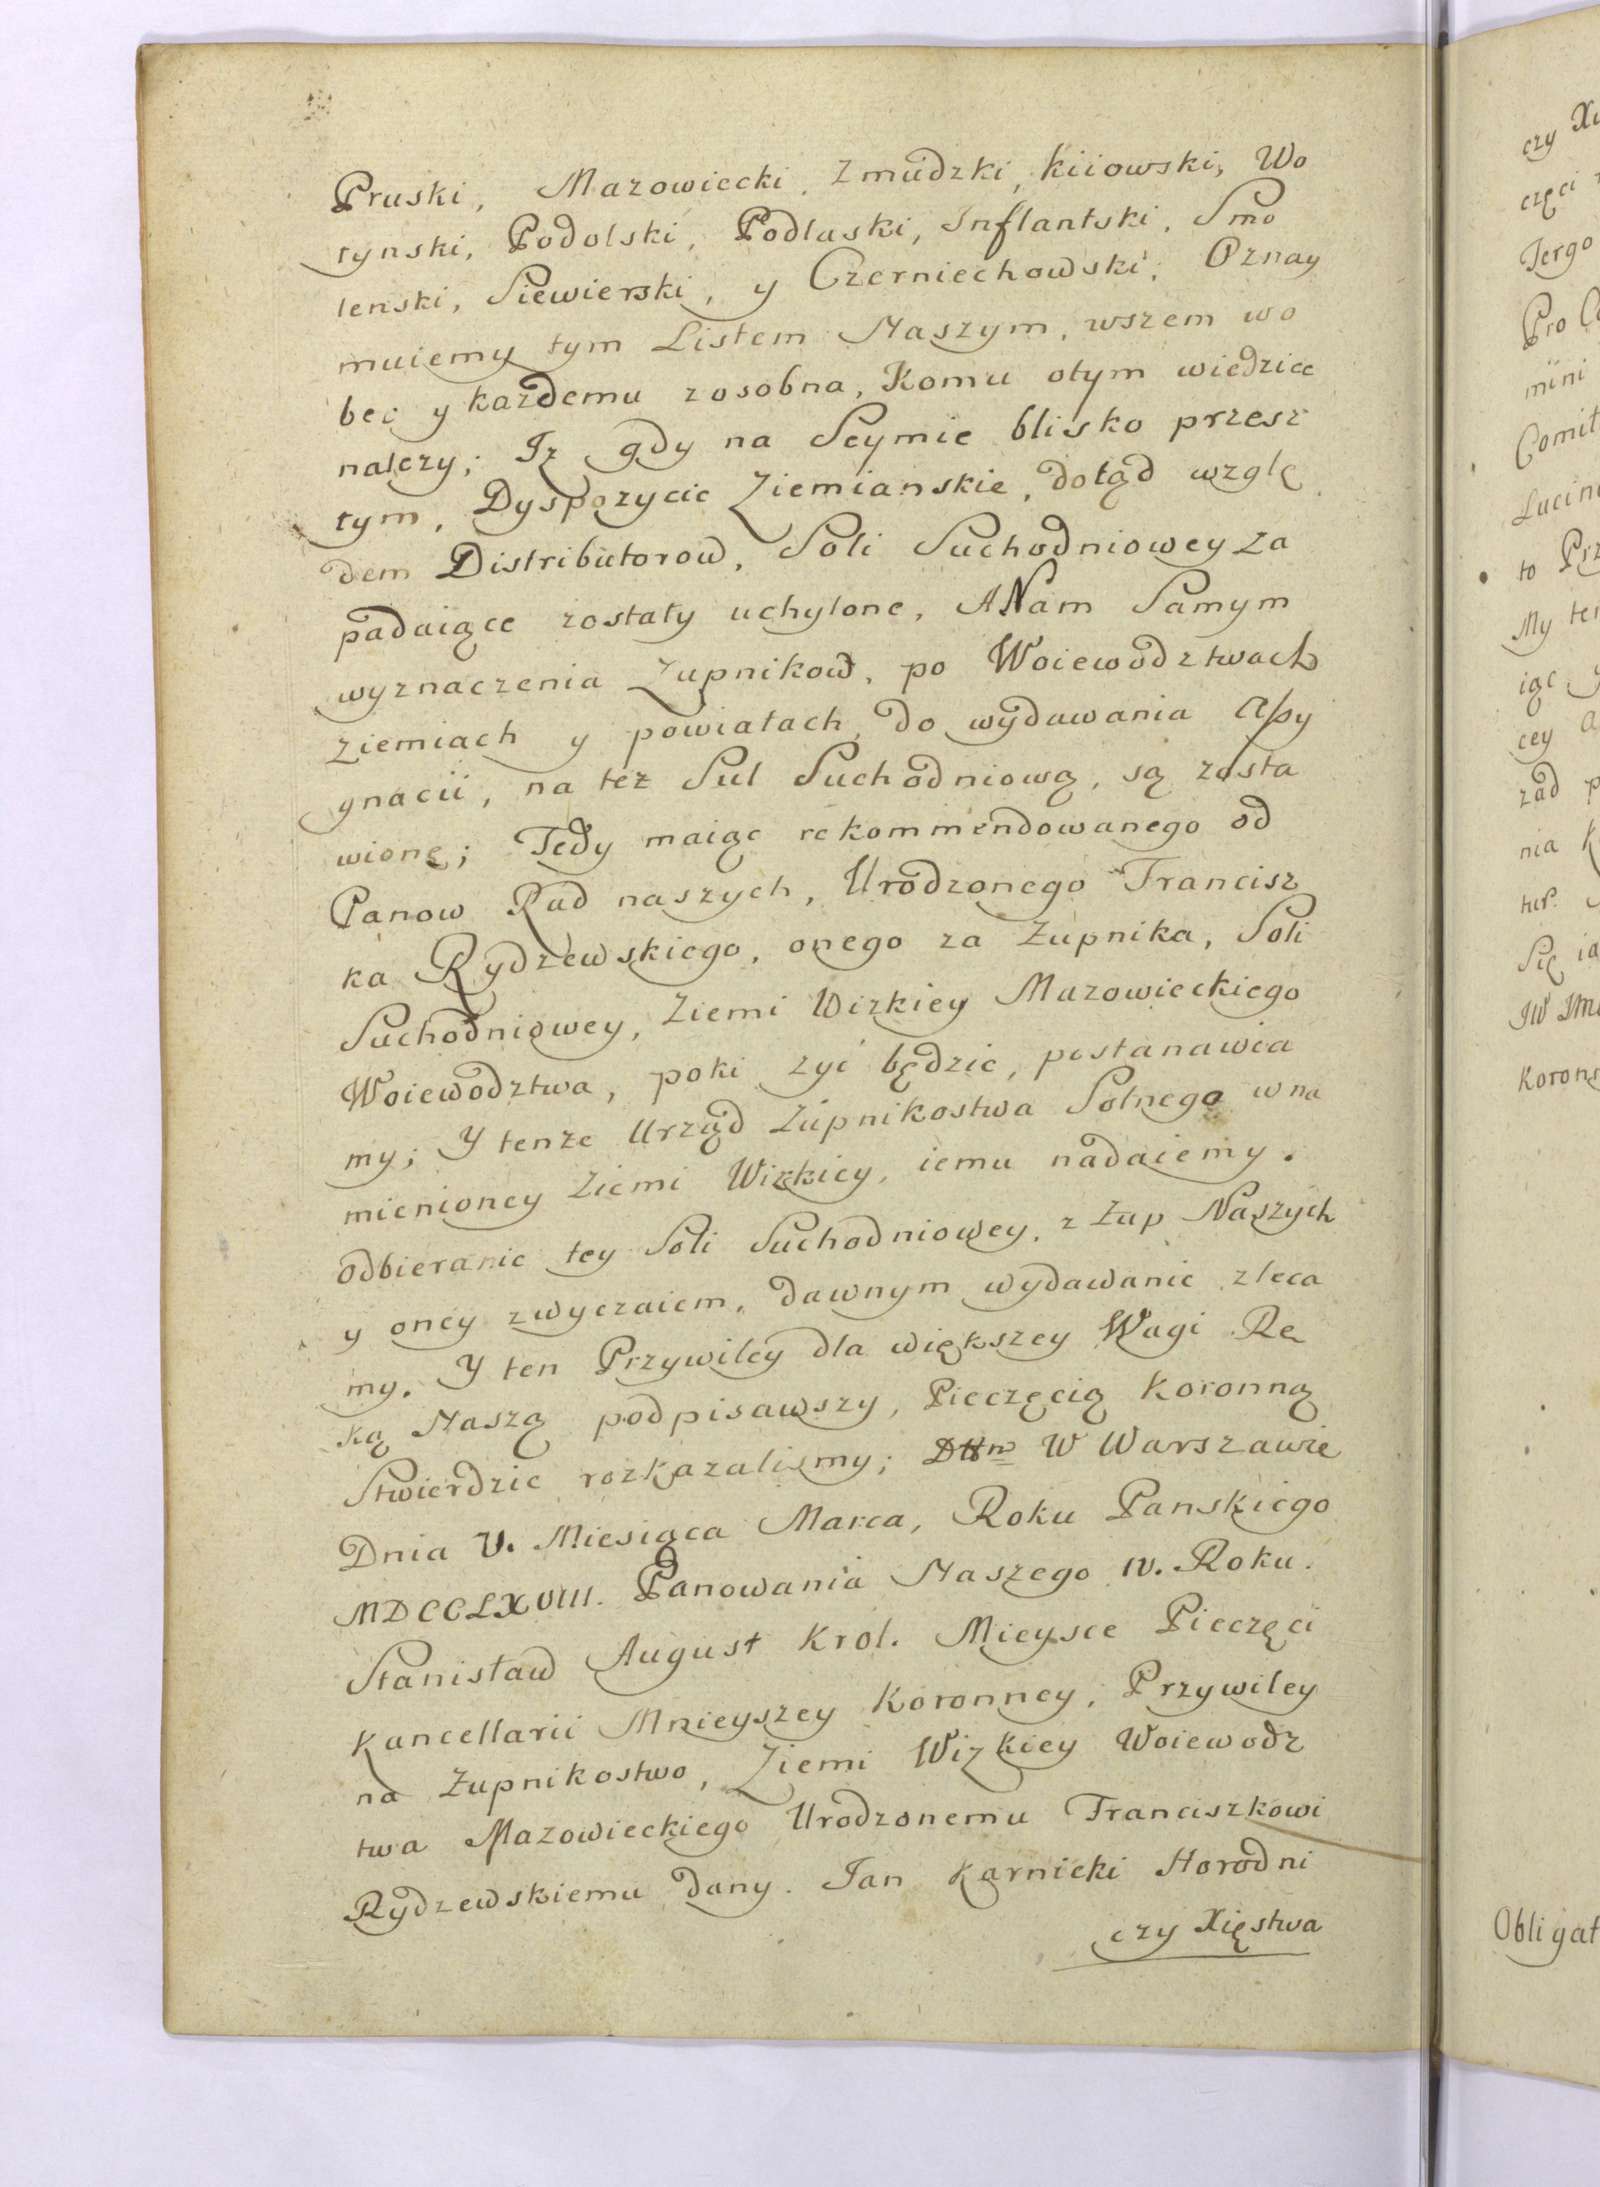 Pruski, Mazowiecki, Zmudzki, Kiiowski, Wo
łynski, Podolski, Podlaski, Inflantski, Smo
lenski, Siewierski, y Czerniechowski; Oznay
muiemy tym Listem Naszym, wszem wo
bec y kazdemu zosobna, Komu otym wiedziec
nalezy; Iz gdy na Seymie blisko przesz
łym, Dyspozycie Ziemianskie, dotąd wzglę
dem Distributorow, Soli Suchodniowey za
padaiące zostały uchylone, A Nam Samym
wyznaczenia Zupnikow, po Woiewodztwach
ziemiach y powiatach, do wydawania Assy
gnacii, na tez Sul Suchodniową, są zosta
wione; Tedy maiąc rekommendowanego od
Panow Rad naszych, Urodzonego Francisz
ka Rydzewskiego, onego za Zupnika, Soli
Suchodniowey, Ziemi Wizkiey Mazowieckiego
Woiewodztwa, poki zyć będzie, postanawia
my; Y tenze Urząd Zupnikostwa Solnego wna
mienioney Ziemi Wizkiey, iemu nadaiemy.
odbieranie tey Soli Suchodniowey, z Zup Naszych
y oney zwyczaiem, dawnym wydawanie zleca
my. Y ten Przywiley dla większey Wagi Rę
ką Naszą podpisawszy, Pieczęcią Koronną
Stwierdzic rozkazalismy; W Warszawie
Dnia V. Miesiąca Marca, Roku Panskiego
MDCCLXVIII. Panowania Naszego IV. Roku.
Stanisław August Krol. Mieysce Pieczęci
Kancellarii Mnieyszey Koronney, Przywiley
na Zupnikostwo, Ziemi Wizkiey Woiewodz
twa Mazowieckiego Urodzonemu Franciszkowi
Rydzewskiemu dany. Ian Karnicki Horodni
czy Xięstwa
czy
częci
Tergo
Pro
mini
Comit
to
My
iąc
cey
nia
Się
Obligat